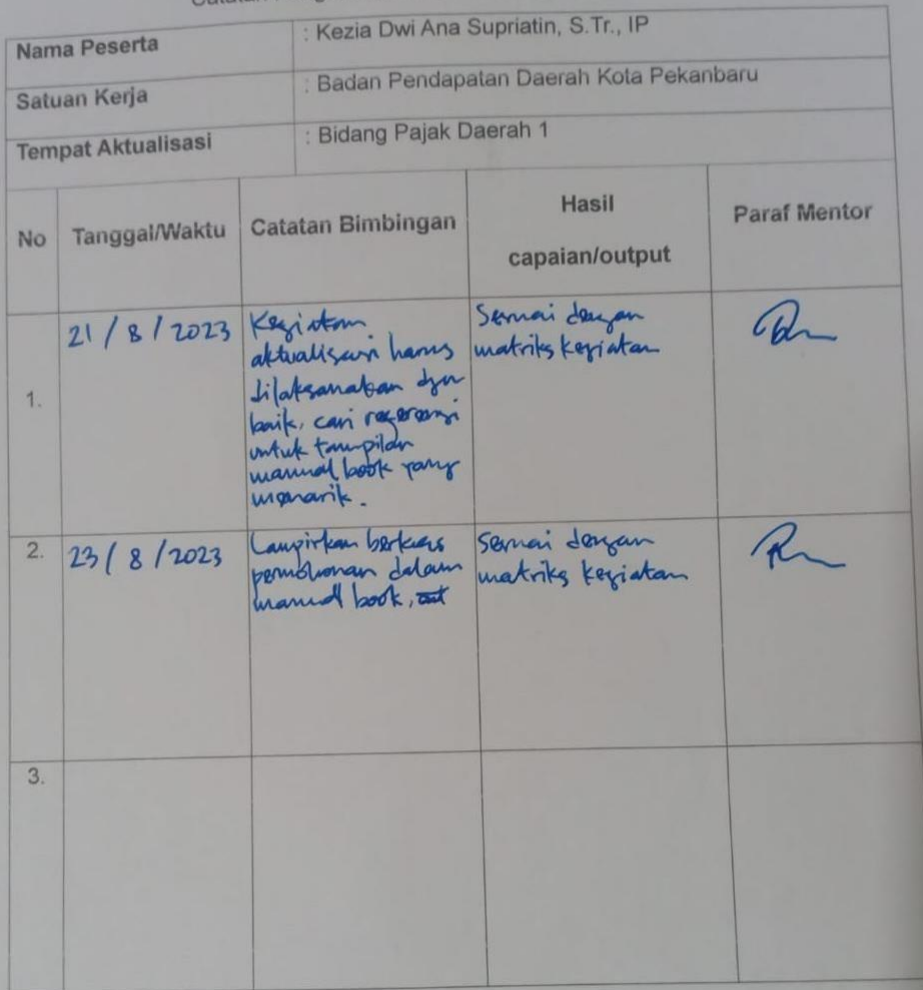 Nama Peserta : Kezia Dwi Ana Supriatin, S.Tr., IP
Satuan Kerja : Badan Pendapatan Daerah Kota Pekanbaru
Tempat Aktualisasi : Bidang Pajak Daerah 1
No Tanggal/Waktu Catatan Bimbingan Hasil capaian/output Paraf Mentor
1.
21/8/2023
Kegiatan
aktualisasi harus
dilaksanakan dgn
baik, cari referensi
untuk tampilan
manual book yang
menarik.
Sesuai dengan
matriks kegiatan
2.
23/8/2023
Lampirkan berkas
permohonan dalam
manual book,
Sesuai dengan
matriks kegiatan
3.